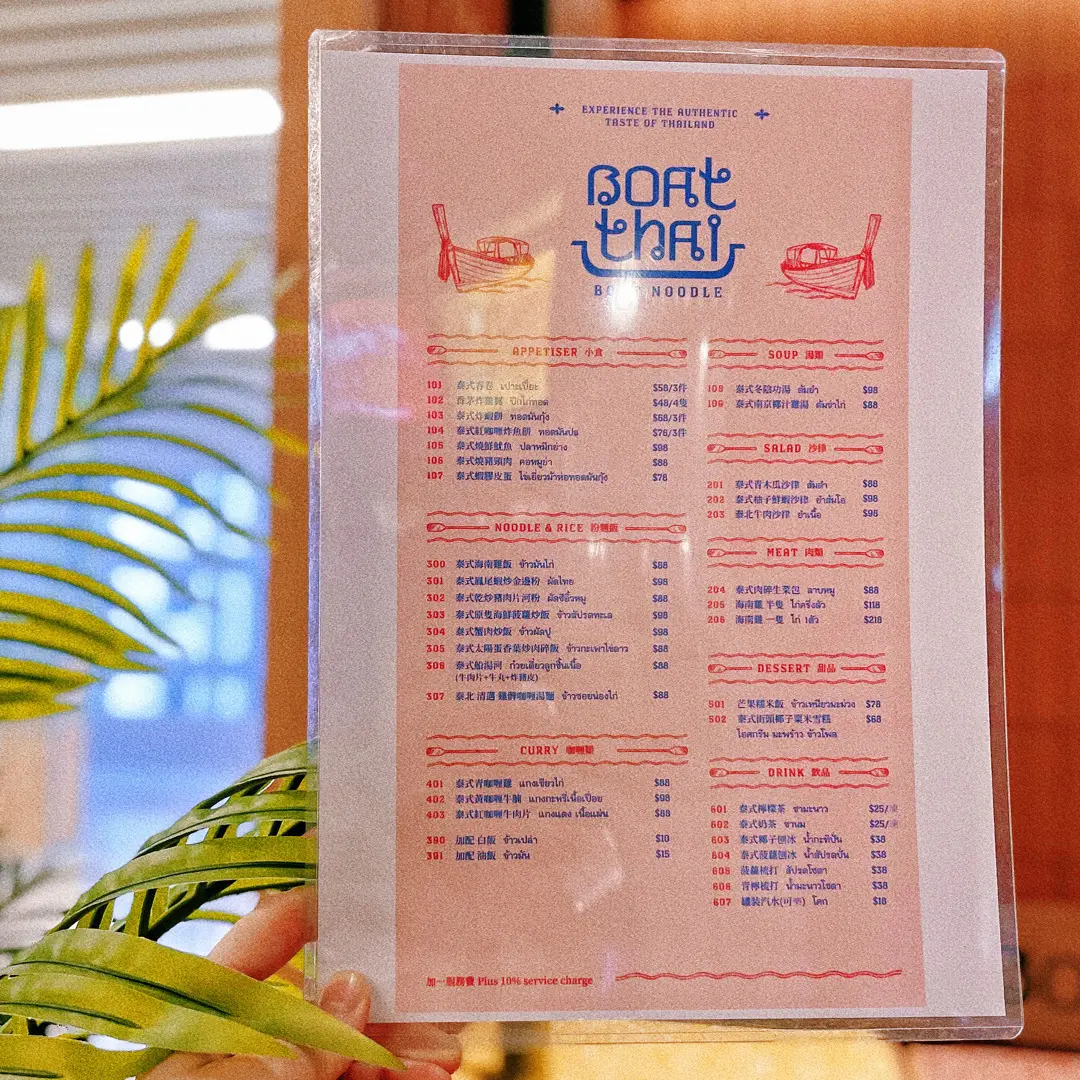 EXPERIENCE THE AUTHENTIC
TASTE OF THAILAND
BOAT
thAI
NOODLE
APPETISER 小食
101 泰式春卷 เปาะเปี๊ยะ $58/3件
102 香茅炸雞翼 ปีกไก่ทอด $48/4隻
103 泰式炸蝦餅 ทอดมันกุ้ง $68/3件
104 泰式紅咖喱炸魚餅 ทอดมันปลา $76/3件
105 泰式燒鮮魷魚 ปลาหมึกย่าง $98
106 泰式燒豬頸肉 คอหมูย่า $88
107 泰式蝦膠皮蛋 ไข่เยี่ยวม้าห่อทอดมันกุ้ง $78
NOODLE & RICE 粉麵飯
300 泰式海南雞飯 ข้าวมันไก่ $88
301 泰式鳳尾蝦炒金邊粉 ผัดไทย $98
302 泰式乾炒豬肉片河粉 ผัดซีอิ๊วหมู $88
303 泰式原隻海鮮菠蘿炒飯 ข้าวสัปรดทะเล $98
304 泰式蟹肉炒飯 ข้าวผัดปู $98
305 泰式太陽蛋香葉炒肉碎飯 ข้าวกะเพาไข่ดาว $88
306 泰式船湯河 ก๋วยเตี๋ยวลูกชิ้นเนื้อ $88
(牛肉片+牛丸+炸豬皮)
307 泰北 清邁 雞髀咖喱湯麵 ข้าวซอยน่องไก่ $88
CURRY 咖喱類
401 泰式青咖喱雞 แกงเขียวไก่ $88
402 泰式黃咖喱牛腩 แกงกะหรี่เนื้อเปื่อย $98
403 泰式紅咖喱牛肉片 แกงแดง เนื้อแผ่น $88
390 加配 白飯 ข้าวเปล่า $10
391 加配 油飯 ข้าวมัน $15
SOUP 湯類
108 泰式冬陰功湯 ต้มยำ $98
109 泰式南京椰汁雞湯 ต้มข่าไก่ $88
SALAD 沙律
201 泰式青木瓜沙律 ส้มตำ $88
202 泰式柚子鮮蝦沙律 ยำส้มโอ $98
203 泰北牛肉沙律 ยำเนื้อ $98
MEAT 肉類
204 泰式肉碎生菜包 ลาบหมู $88
205 海南雞 半隻 ไก่ครึ่งตัว $118
206 海南雞 一隻 ไก่ 1ตัว $218
DESSERT 甜品
501 芒果糯米飯 ข้าวเหนียวมะม่วง $78
502 泰式街頭椰子粟米雪糕 $68
ไอศกรีม มะพร้าว ข้าวโพด
DRINK 飲品
601 泰式檸檬茶 ชามะนาว $25/凍
602 泰式奶茶 ชานม $25/凍
603 泰式椰子刨冰 น้ำกะทิปั่น $38
604 泰式菠蘿刨冰 น้ำสัปรดปั่น $38
605 菠蘿梳打 สัปรดโซดา $38
606 青檸梳打 น้ำมะนาวโซดา $38
607 罐裝汽水(可樂) โคก $18
加一服務費 Plus 10% service charge